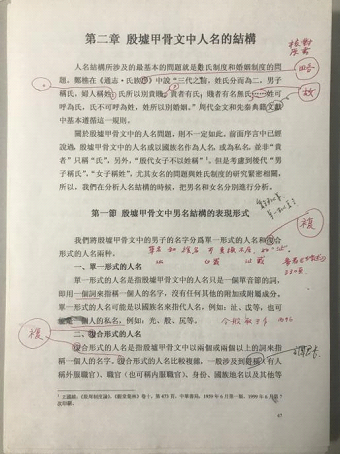 第二章 殷墟甲骨文中人名的結構
人名結構所涉及的最基本的問題就是姓氏制度和婚姻制度的問
題。鄭樵在《通志·氏族》中説“三代之前，姓氏分而為二，男子
稱氏，婦人稱姓。氏所以別貴賤，貴者有氏；賤者有名無氏……姓可
呼為氏，氏不可呼為姓，姓所以別婚姻。”周代金文和先秦典籍文獻
中基本遵循這一規則。
關於殷墟甲骨文中的人名問題，則不一定如此。前面序言中已經
說過，殷墟甲骨文中的人名或以國族名作為人名，或為私名，並非“貴
者”只稱“氏”，另外，“殷代女子不以姓稱”¹。但是考慮到後代“男
子稱氏”、“女子稱姓”，尤其女名的問題與姓氏制度的研究緊密相關，
所以，我們在分析人名結構的時候，把男名和女名分別進行分析。
第一節 殷墟甲骨文中男名結構的表現形式
複
我們將殷墟甲骨文中的男子的名字分爲單一形式的人名和復合
形式的人名兩种。
一、單一形式的人名
單一形式的人名是指殷墟甲骨文中的人名只是一個單音節的詞，
即用一個詞來指稱一個人的名字，沒有任何其他的附加或附屬成分。
單一形式的人名可能是以國族名來指代人名，例如：沚、戉等，也可
一個人的私名，例如：光、般、㞢等。
複
二、復合形式的人名
復合形式的人名是指殷墟甲骨文中以兩個或兩個以上的詞來指
稱一個人的名字。復合形式的人名比較複雜，一般涉及到
稱外服職官）、職官（也可稱内服職官）、身份、國族地名以及其他等
¹ 王國維：《殷周制度論》，《觀堂集林》卷十，第473頁，中華書局，1959年6月第一版，1999年6月第
次印刷。
47